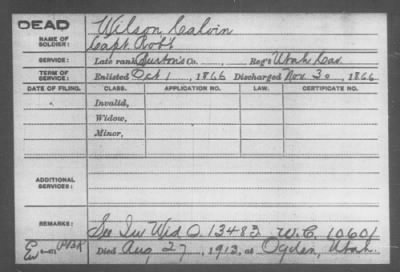 DEAD
NAME OF SOLDIER: Wilson Calvin
Capt. Robt
SERVICE: Late rank, Burton's Co., Reg't Utah Cav.
TERM OF SERVICE: Enlisted Oct 1, 1866 Discharged Nov. 30, 1866
DATE OF FILING. CLASS. APPLICATION NO. LAW. CERTIFICATE NO.
Invalid,
Widow,
Minor,
ADDITIONAL SERVICES:
REMARKS: See Inv Wid O. 13483 W.C. 10601
Died Aug 27, 1913, at Ogden, Utah.